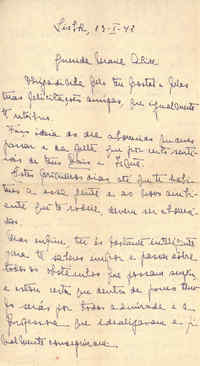 Lisboa, 13-X-42
Querida Maria Alice
Obrigadinha pelo teu postal e pelas
tuas felicitações amigas, que igualmente
te retribuo.
Faço ideia os
passar e a falta que por certo
rás de teus Pais e
Estes primeiros dias até que te habi-
tues a essa gente e ao novo ambi-
ente que te rodeia, devem ser aborreci-
dos.
Mas enfim, tu és bastante inteligente
para te saberes impor e passar sobre
todos os obstáculos que possam surgir
e estou certa que dentro de pouco tem-
po serás por todos admirada e a
Professora que idealizavas e fi-
nalmente conseguiram.